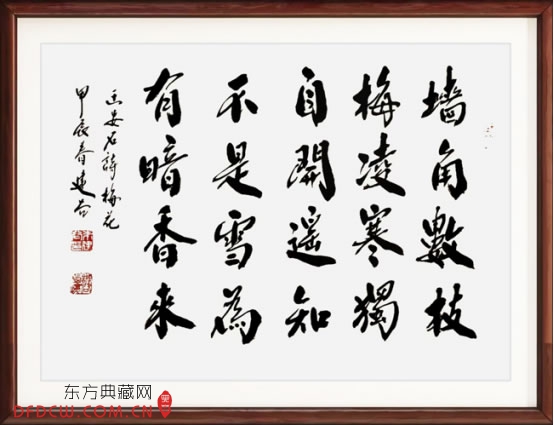 墙角數枝
梅凌寒獨
自開遥知
不是雪為
有暗香来
王安石詩梅花
甲辰春建谷
东方典藏网
DFDCW.COM.CN